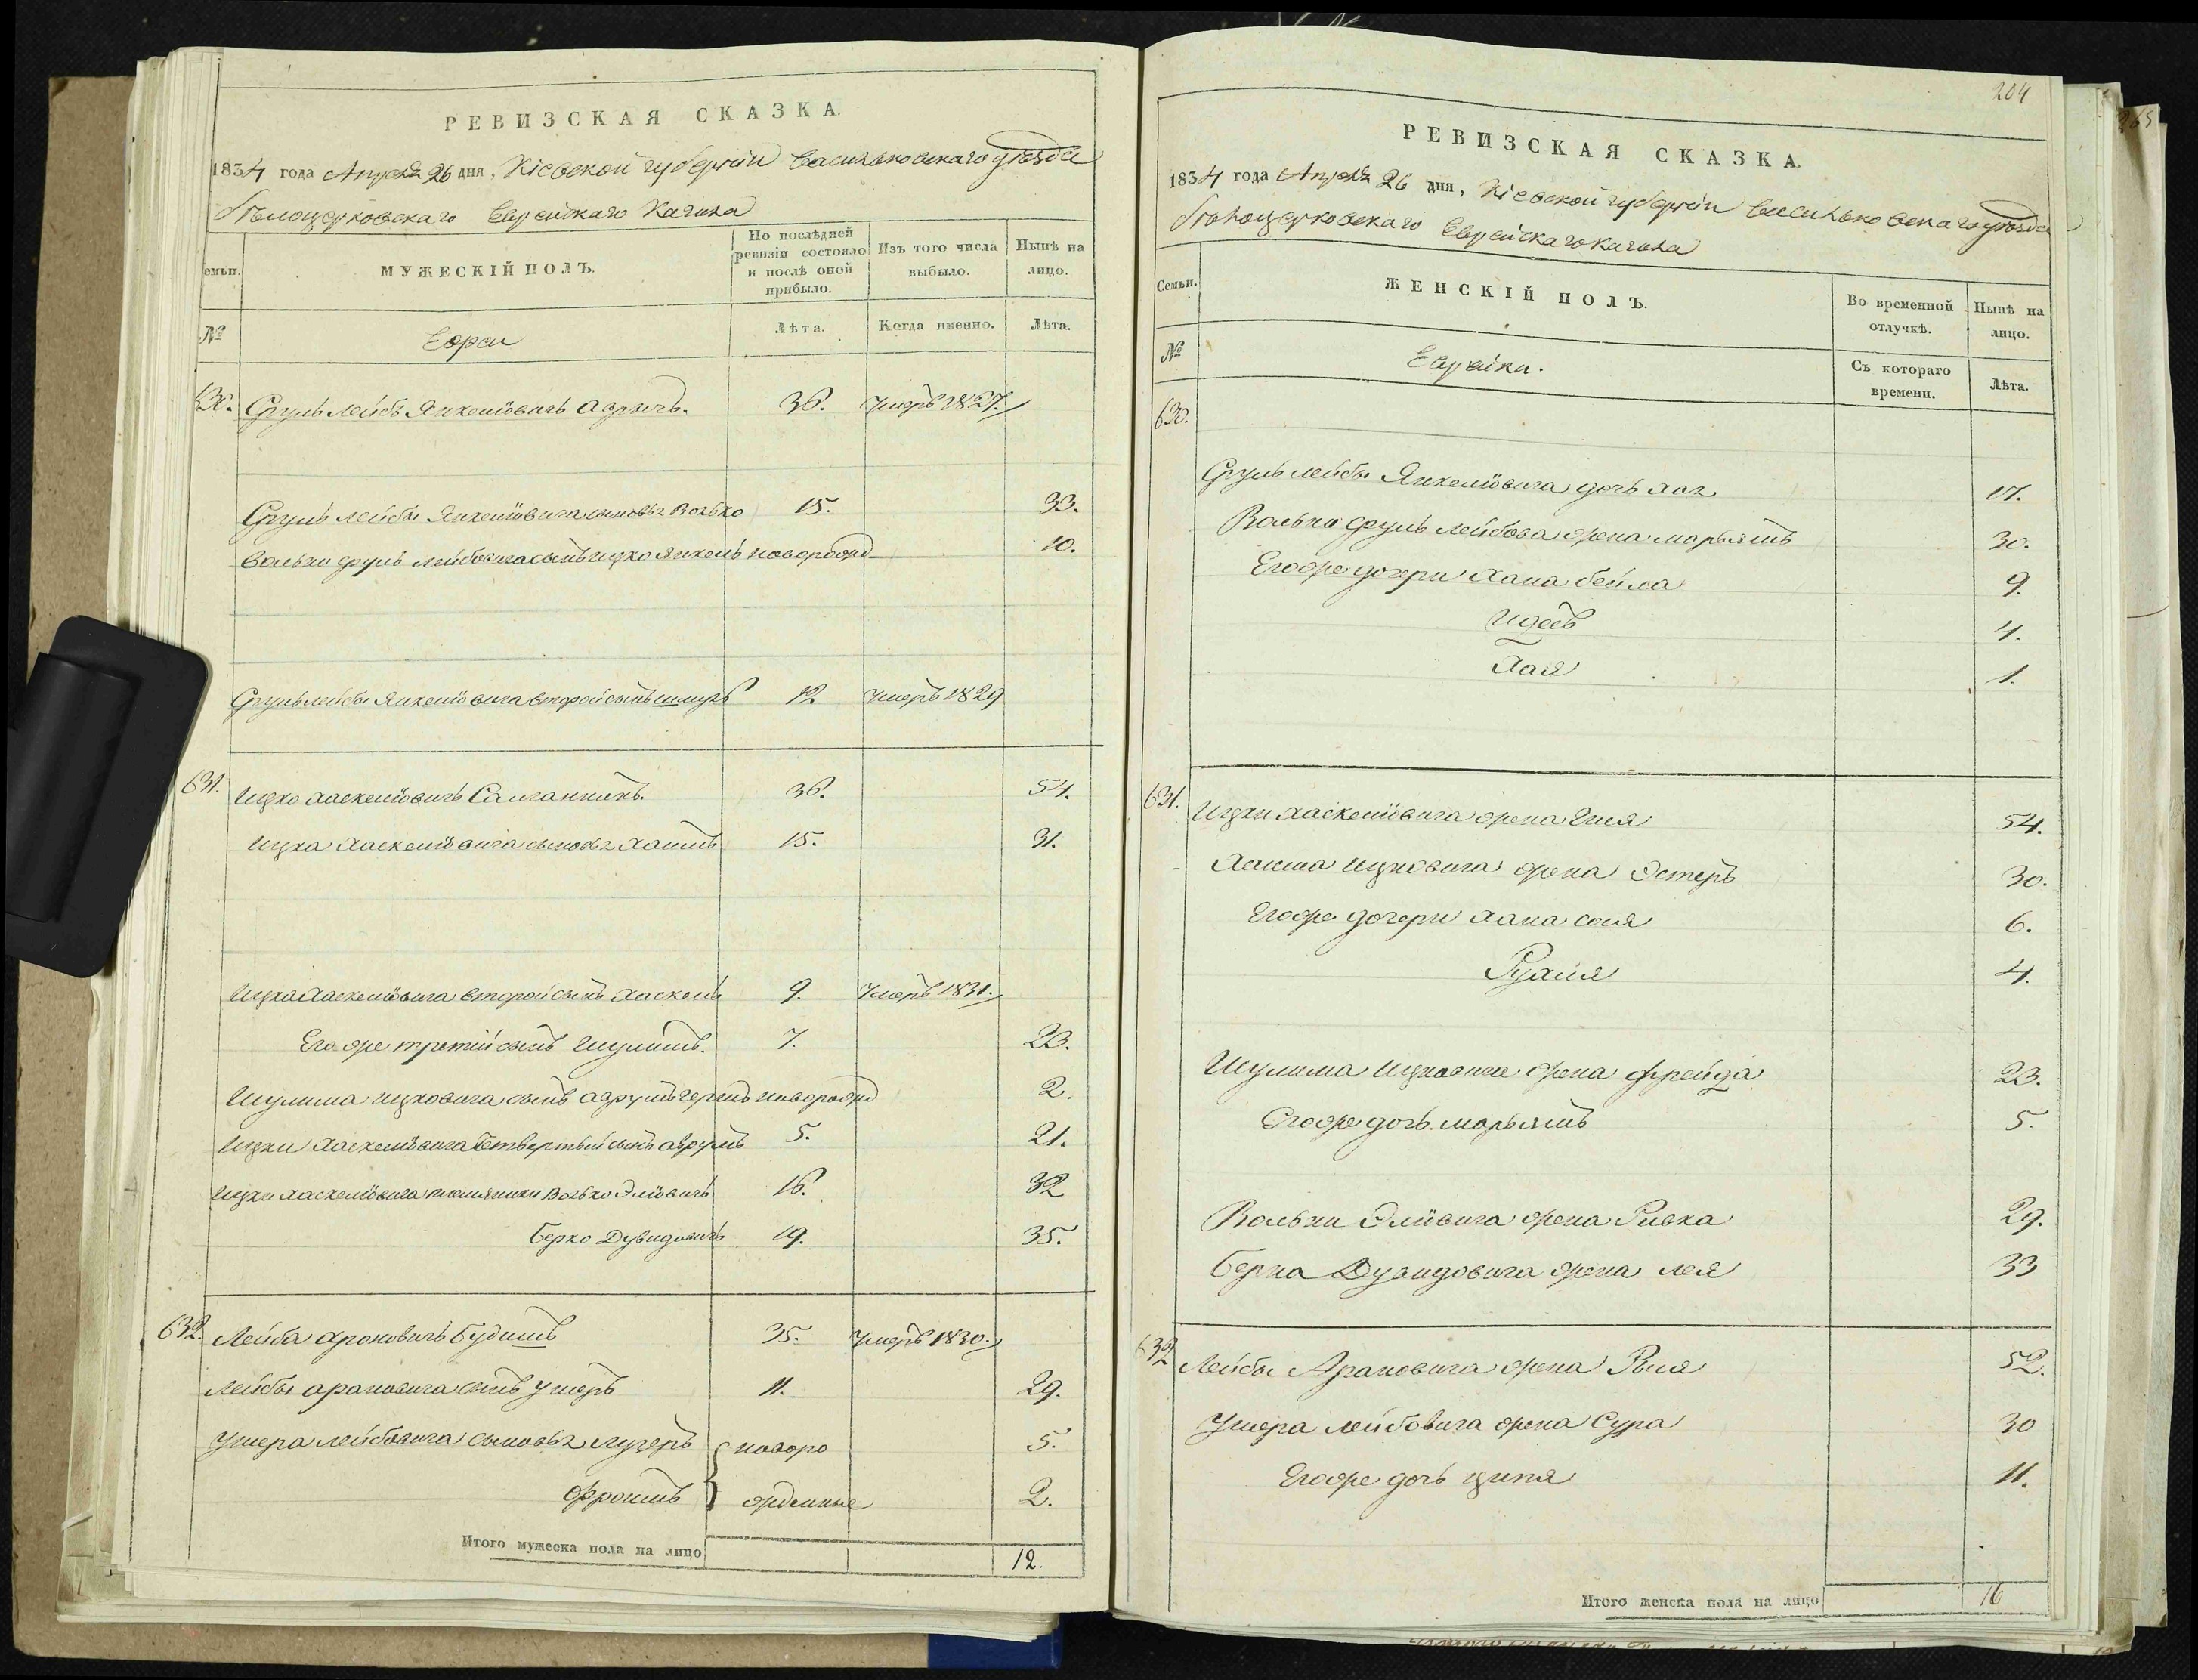 РЕВИЗСКАЯ СКАЗКА.
1834 года Апреля 26 дня, Кіевской губерніи Васильковскаго уѣзда
Бѣлоцерковскаго Еврейскаго Кагала
емьи.
МУЖЕСКІЙ ПОЛЪ.
По послѣдней ревизіи состояло и послѣ оной прибыло.
Изъ того числа выбыло.
Нынѣ на лицо.
№
Евреи
Лѣта.
Когда именно.
Лѣта.
630. Сруль Лейбъ Янкелiовичъ 36. Умеръ 1827.
Сруль Лейбы Янкелiовича сыновья Волько 15. 33.
Вольки Сруль Лейбовича сынъ Ицко Янкель новорожд 10.
Сруль Лейбы Янкелiовича второй сынъ 12 Умеръ 1829
631. Ицко Хаскелiовичъ 36. 54.
Ицка Хаскелiовича сыновья Хаимъ 15. 31.
Ицка Хаскелiовича второй сынъ Хаскель 9. Умеръ 1831.
Его же третій сынъ Шулимъ. 7. 23.
Шулима Ицковича сынъ Аврумъ Гершъ новорожд 2.
Ицки Хаскелiовича четвертый сынъ Аврумъ 5. 21.
Ицки Хаскелiовича племянники Волько Элiовичъ 16. 32
Берко Дувидовичъ 19. 35.
632. Лейба Ароновичъ 35. Умеръ 1830.
Лейбы Ароновича сынъ Ушеръ 11. 29.
Ушера Лейбовича сыновья Лузеръ новоро 5.
Фроимъ жденные 2.
Итого мужеска пола на лицо 12.
204
РЕВИЗСКАЯ СКАЗКА.
1834 года Апреля 26 дня, Кіевской губерніи Васильковскаго уѣзда
Бѣлоцерковскаго Еврейскаго Кагала
Семьи.
ЖЕНСКІЙ ПОЛЪ.
Во временной отлучкѣ.
Нынѣ на лицо.
№
Еврейки.
Съ котораго времени.
Лѣта.
630.
Сруль Лейбы Янкелiовича дочь 17.
Вольки Сруль Лейбова жена Марьямъ 30.
Его же дочери Хана Бейла 9.
Идесь 4.
Хая 1.
631. Ицки Хаскелiовича жена 54.
Хаима Ицковича жена Эстеръ 30.
Его же дочери Хана Сося 6.
4.
Шулима Ицковича жена Фрейда 23.
Его же дочь Марьямъ 5.
Вольки Элiовича жена Ривка 29.
Берка Дувидовича жена Лея 33
632 Лейбы Ароновича жена 52.
Ушера Лейбовича жена Сура 30
Его же дочь Ципя 11.
Итого женска пола на лицо 16
265